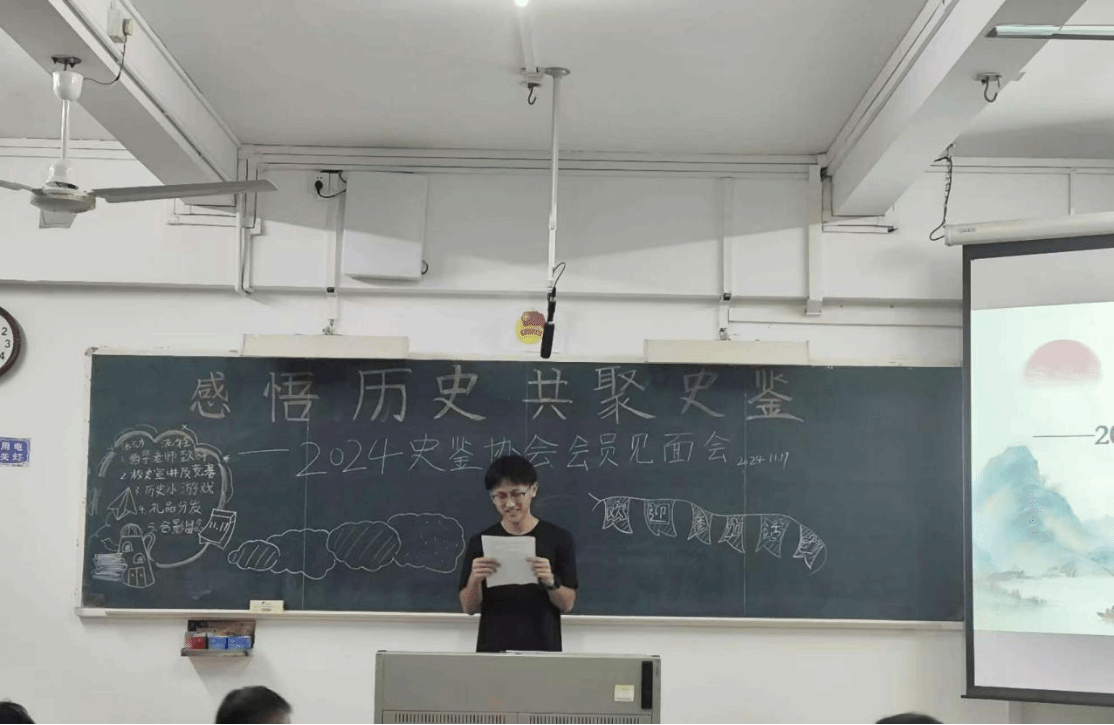 感悟历史 共聚史鉴
——2024史鉴协会会员见面会 2024.11.17
流程
老师致辞
2.校史宣讲及竞赛
3.历史小游戏
4.礼品分发
5.合影留念
欢迎参加活动
用电
关灯
2
3
4
——20